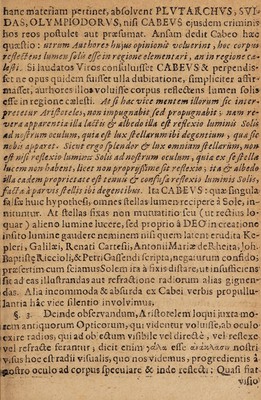 hanc materiam pertinet, absolvent PLVTARCHVS, SVI-
DAS, OLYMPIODORVS, nisi CABEVS ejusdem criminis
hos reos postulet aut præsumat. Ansam dedit Cabeo hæc
quæstio: utrum Authores hujus opinionis voluerint, hoc corpus
reflectens lumen solis esse in regione elementari, an in regione cæ-
lesti. Si laudatos Vicos consuluisset CABEVS & perpendis-
set ne opus quidem fuisset ulla dubitatione, simpliciter affir-
masset, authores illos voluisse corpus reflectens lumen solis
esse in regione cælesti. At si hac vice mentem illorum sic inter-
pretetur Aristoteles, non impugnabit sed repugnabit: nam re-
vera apparentia illa lactis & albedo illa est reflexio luminis Solis
ad nostrum oculum, quia est lux stellarum ibi degentium, quæ sic
nobis apparet. Sicut ergo splendor & lux omnium stellarum, non
est nisi reflexio luminis Solis ad nostrum oculum, quia ex se stella
lucem non habent, licet non propriissime sit reflexio; ita & albedo
illa eadem proprietate est tenuis & confusa reflexio luminis Solis,
facta à parvis stellis ibi degentibus. Ita CABEVS: quæ singula
falsæ huic hypothesi, omnes stellas lumen recipere à Sole, in-
nituntur. At stellas fixas non mutatitio seu (ut rectius lo-
quar) alieno lumine lucere, sed proprio à DEO in creatione
insito lumine gaudere neminem nisi quem latent erudita Ke-
pleri, Galilæi, Renati Cartesii, Antonii Mariæ de Rheita, Joh.
Baptistę Riccioli, & Petri Gassendi scripta, negaturum confido;
præsertim cum sciamus Solem ita à fixis distare, ut insufficiens
sit ad eas illustrandas aut refractione radiorum alias gignen-
das. Alia incommoda & absurda ex Cabei verbis propullu-
lantia hâc vice silentio involvimus.
§. 3. Deinde observandum, Aristotelem loqui juxta mo-
rem antiquorum Opticorum, qui videntur voluisse, ab oculo
exire radios, qui ad objectum visibile vel directè, vel reflexe
vel refracte ferantur; dicit enim esse nostri
visus hoc est radii visualis, quo nos videmus, progredientis à
nostro oculo ad corpus speculare & inde reflecti: Quasi fiat
visio